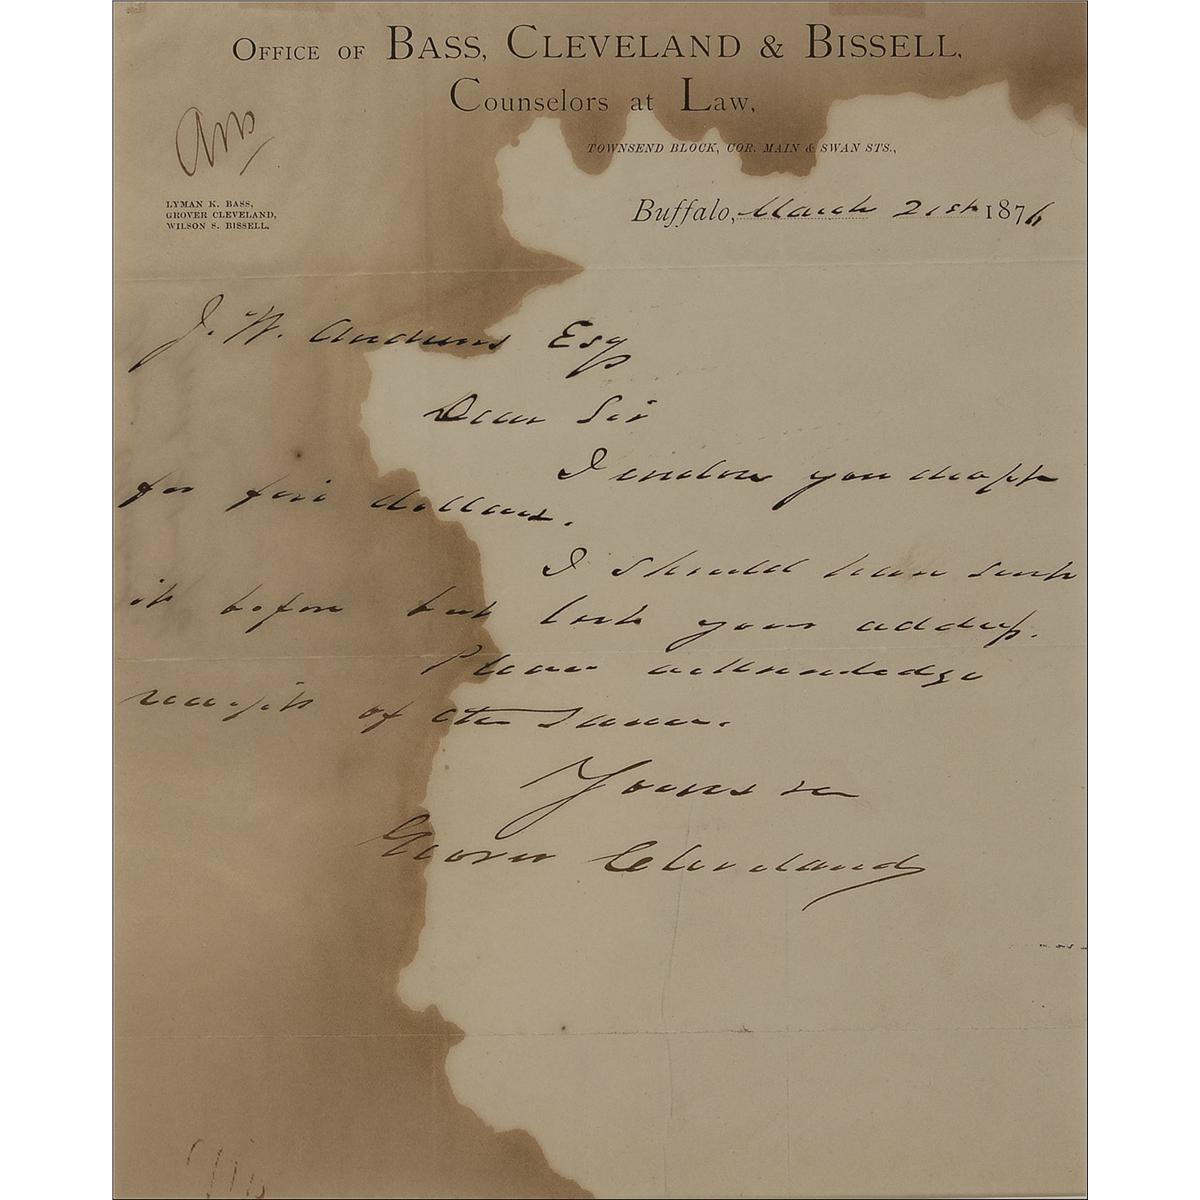 OFFICE OF BASS, CLEVELAND & BISSELL,
COUNSELORS AT LAW,
TOWNSEND BLOCK, COR. MAIN & SWAN STS.,
Ans
LYMAN K. BASS,
GROVER CLEVELAND,
WILSON S. BISSELL.
Buffalo, March 21st 1876
J. W. Andrews Esq
Dear Sir
I enclose you draft
for five dollars.
I should have sent
it before but lost your address.
Please acknowledge
receipt of the same.
Yours &c
Grover Cleveland